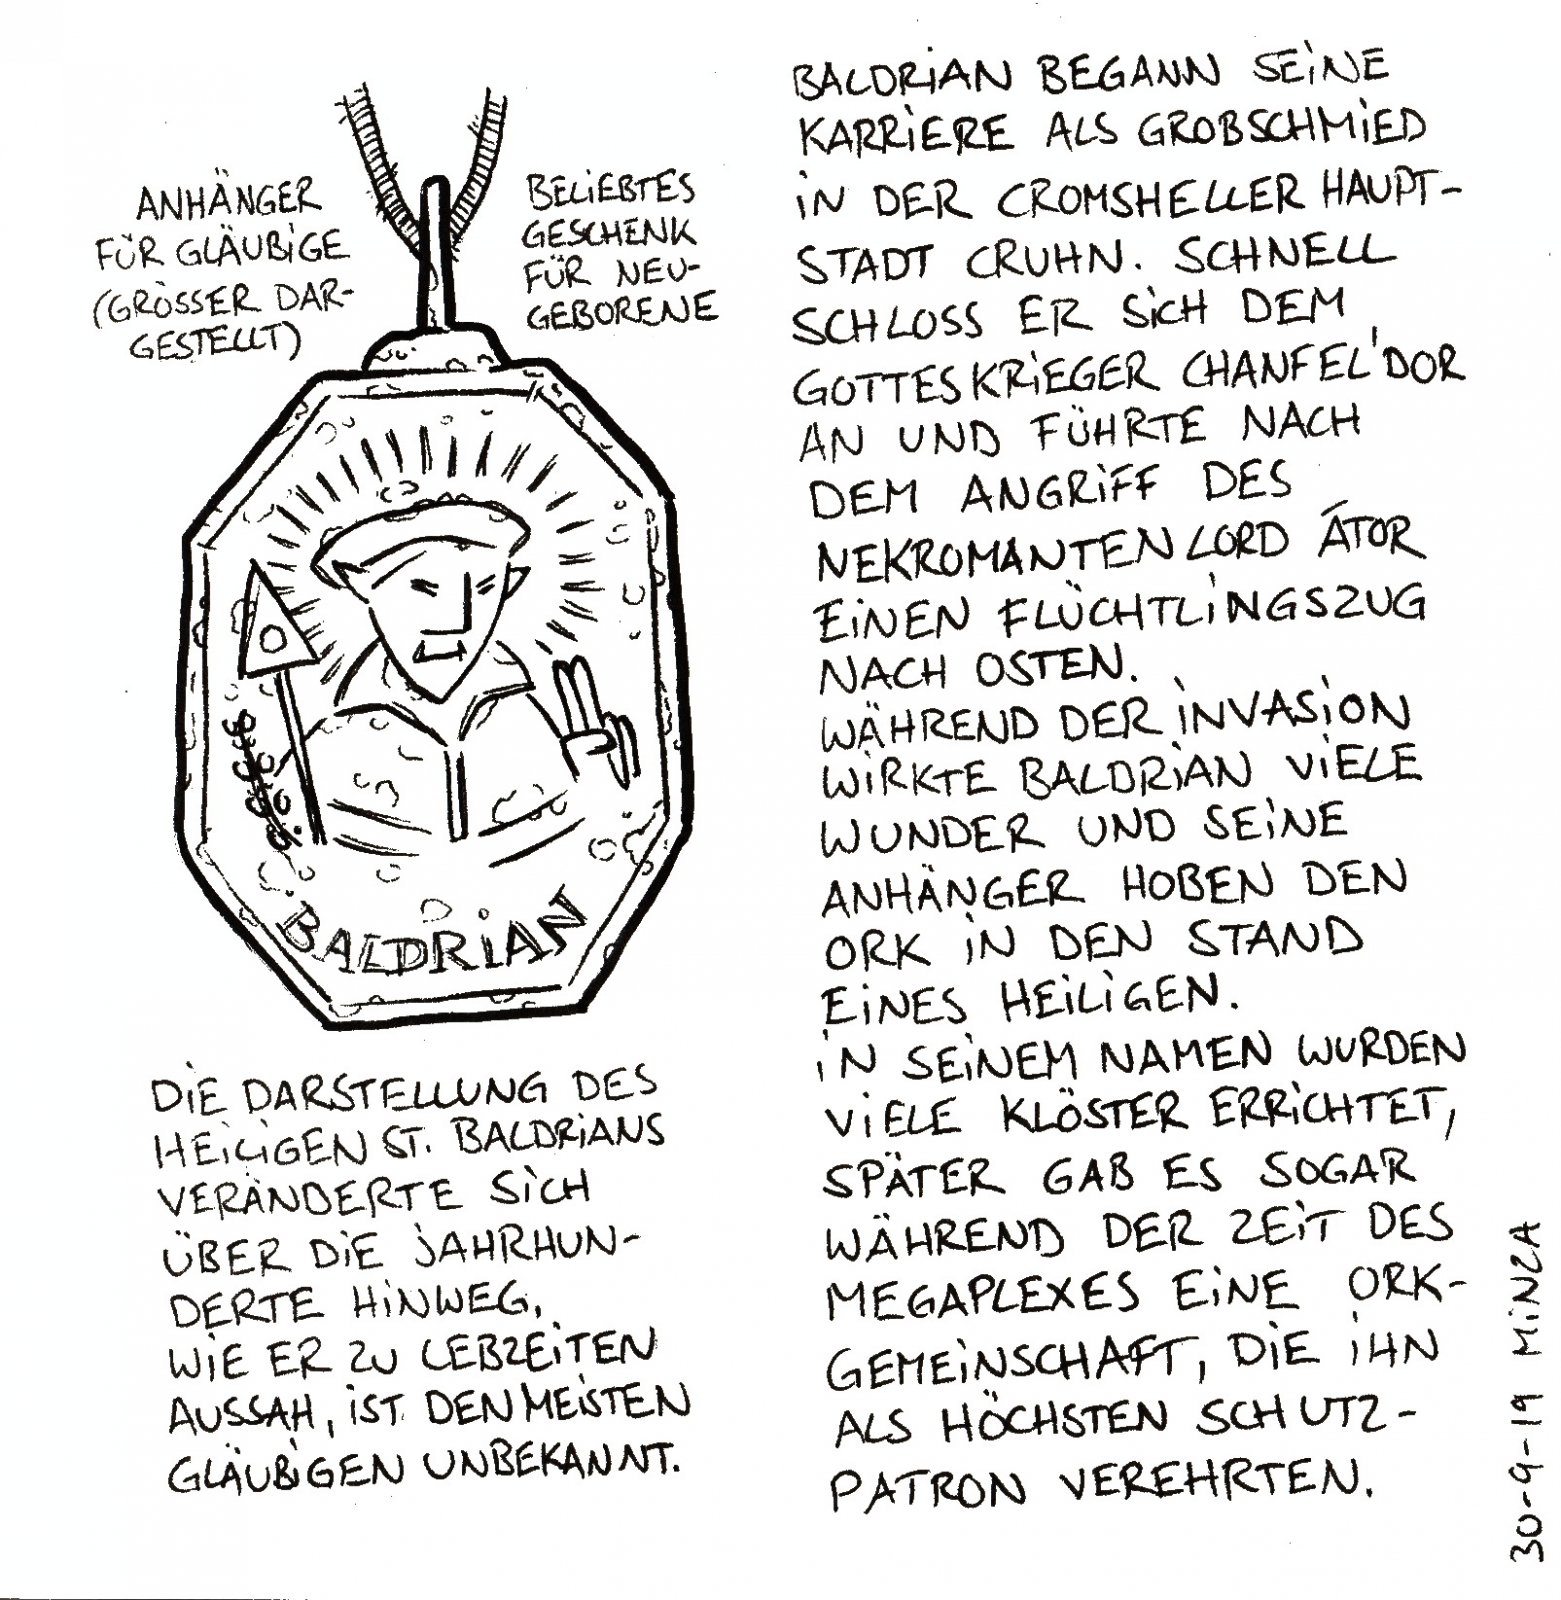 ANHÄNGER
FÜR GLÄUBIGE
(GRÖSSER DAR-
GESTELLT)
BELIEBTES
GESCHENK
FÜR NEU-
GEBORENE
BALDRIAN
DIE DARSTELLUNG DES
HEILIGEN ST. BALDRIANS
VERÄNDERTE SICH
ÜBER DIE JAHRHUN-
DERTE HINWEG,
WIE ER ZU LEBZEITEN
AUSSAH, IST DEN MEISTEN
GLÄUBIGEN UNBEKANNT.
BALDRIAN BEGANN SEINE
KARRIERE ALS GROBSCHMIED
IN DER CROMSHELLER HAUPT-
STADT CRUHN. SCHNELL
SCHLOSS ER SICH DEM
GOTTESKRIEGER CHANFEL'DOR
AN UND FÜHRTE NACH
DEM ANGRIFF DES
NEKROMANTENLORD ÁTOR
EINEN FLÜCHTLINGSZUG
NACH OSTEN.
WÄHREND DER INVASION
WIRKTE BALDRIAN VIELE
WUNDER UND SEINE
ANHÄNGER HOBEN DEN
ORK IN DEN STAND
EINES HEILIGEN.
IN SEINEM NAMEN WURDEN
VIELE KLÖSTER ERRICHTET,
SPÄTER GAB ES SOGAR
WÄHREND DER ZEIT DES
MEGAPLEXES EINE ORK-
GEMEINSCHAFT, DIE IHN
ALS HÖCHSTEN SCHUTZ-
PATRON VEREHRTEN.
30-9-19 MINZA